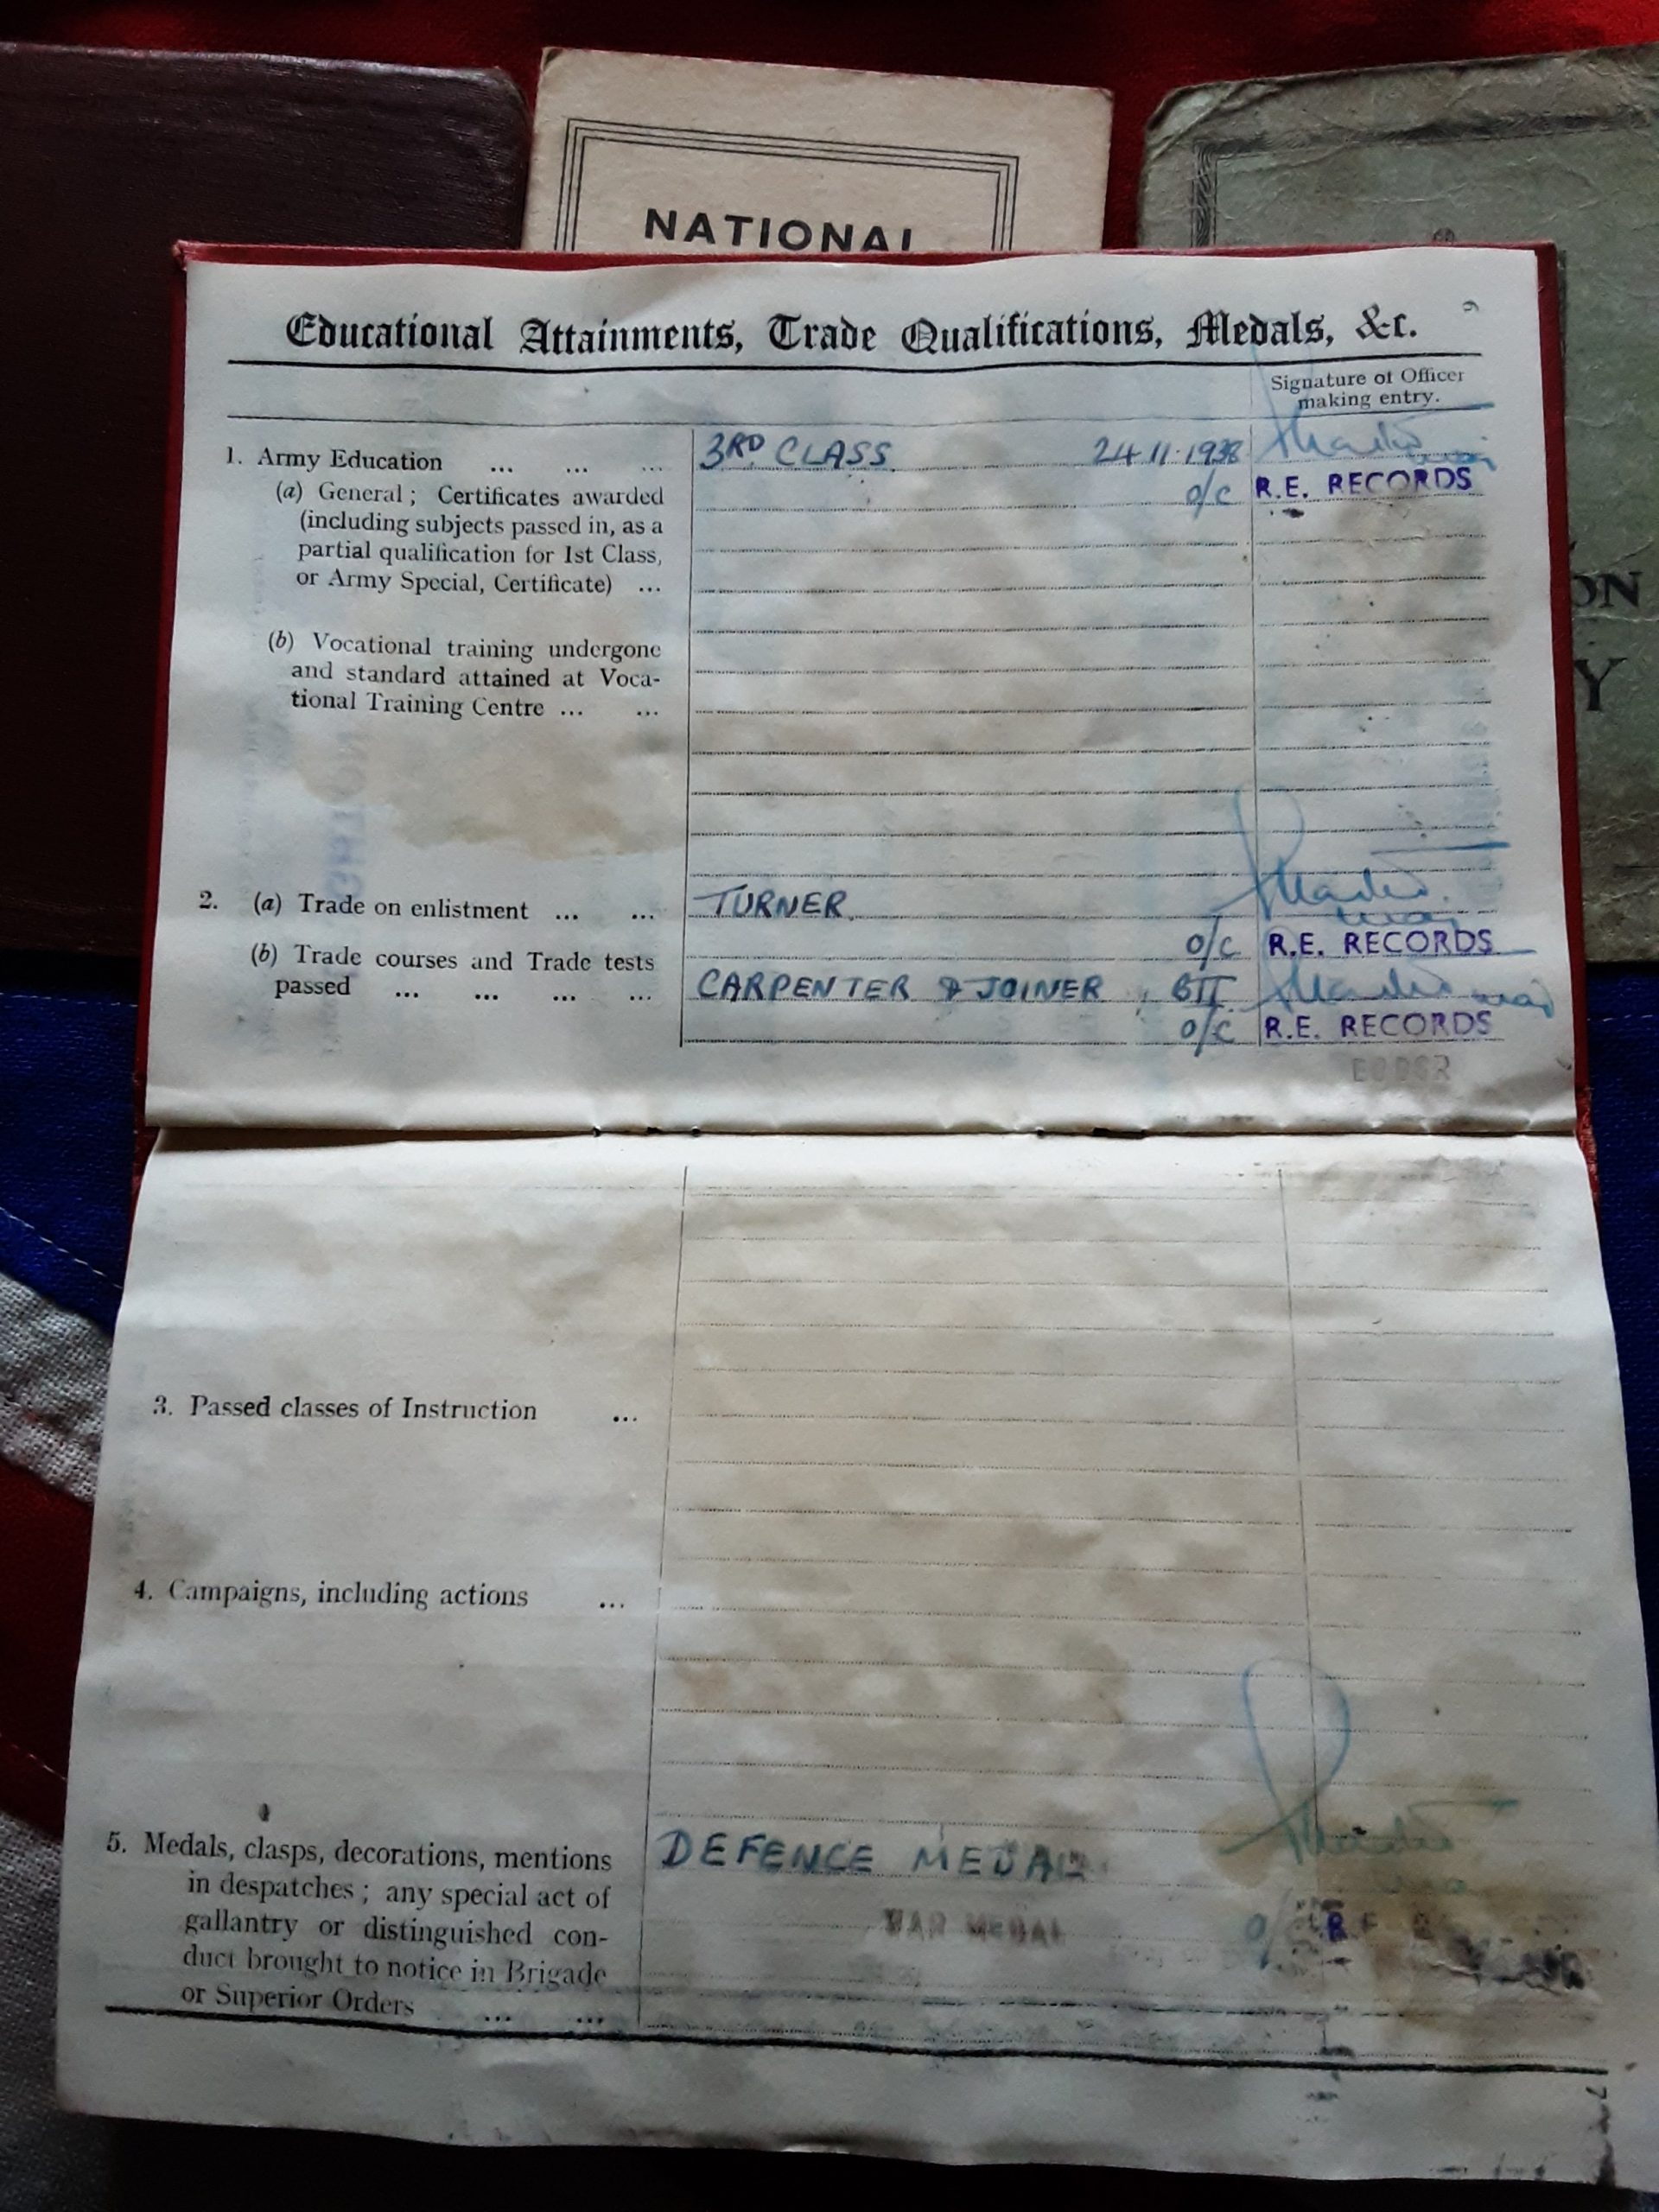 NATIONAL
ON
Y
6
Educational Attainments, Trade Qualifications, Medals, &c.
Signature of Officer
making entry.
1. Army Education ... ... ... 3RD CLASS. 24.11.1938
(a) General; Certificates awarded O/C R.E. RECORDS
(including subjects passed in, as a
partial qualification for 1st Class,
or Army Special, Certificate) ...
(b) Vocational training undergone
and standard attained at Voca-
tional Training Centre ... ...
2. (a) Trade on enlistment ... ... TURNER.
(b) Trade courses and Trade tests O/C R.E. RECORDS
passed ... ... ... ... CARPENTER & JOINER, BII
O/C R.E. RECORDS
3. Passed classes of Instruction ...
4. Campaigns, including actions ...
5. Medals, clasps, decorations, mentions DEFENCE MEDAL
in despatches; any special act of
gallantry or distinguished con- WAR MEDAL O/C R.E.
duct brought to notice in Brigade
or Superior Orders ... ...
7